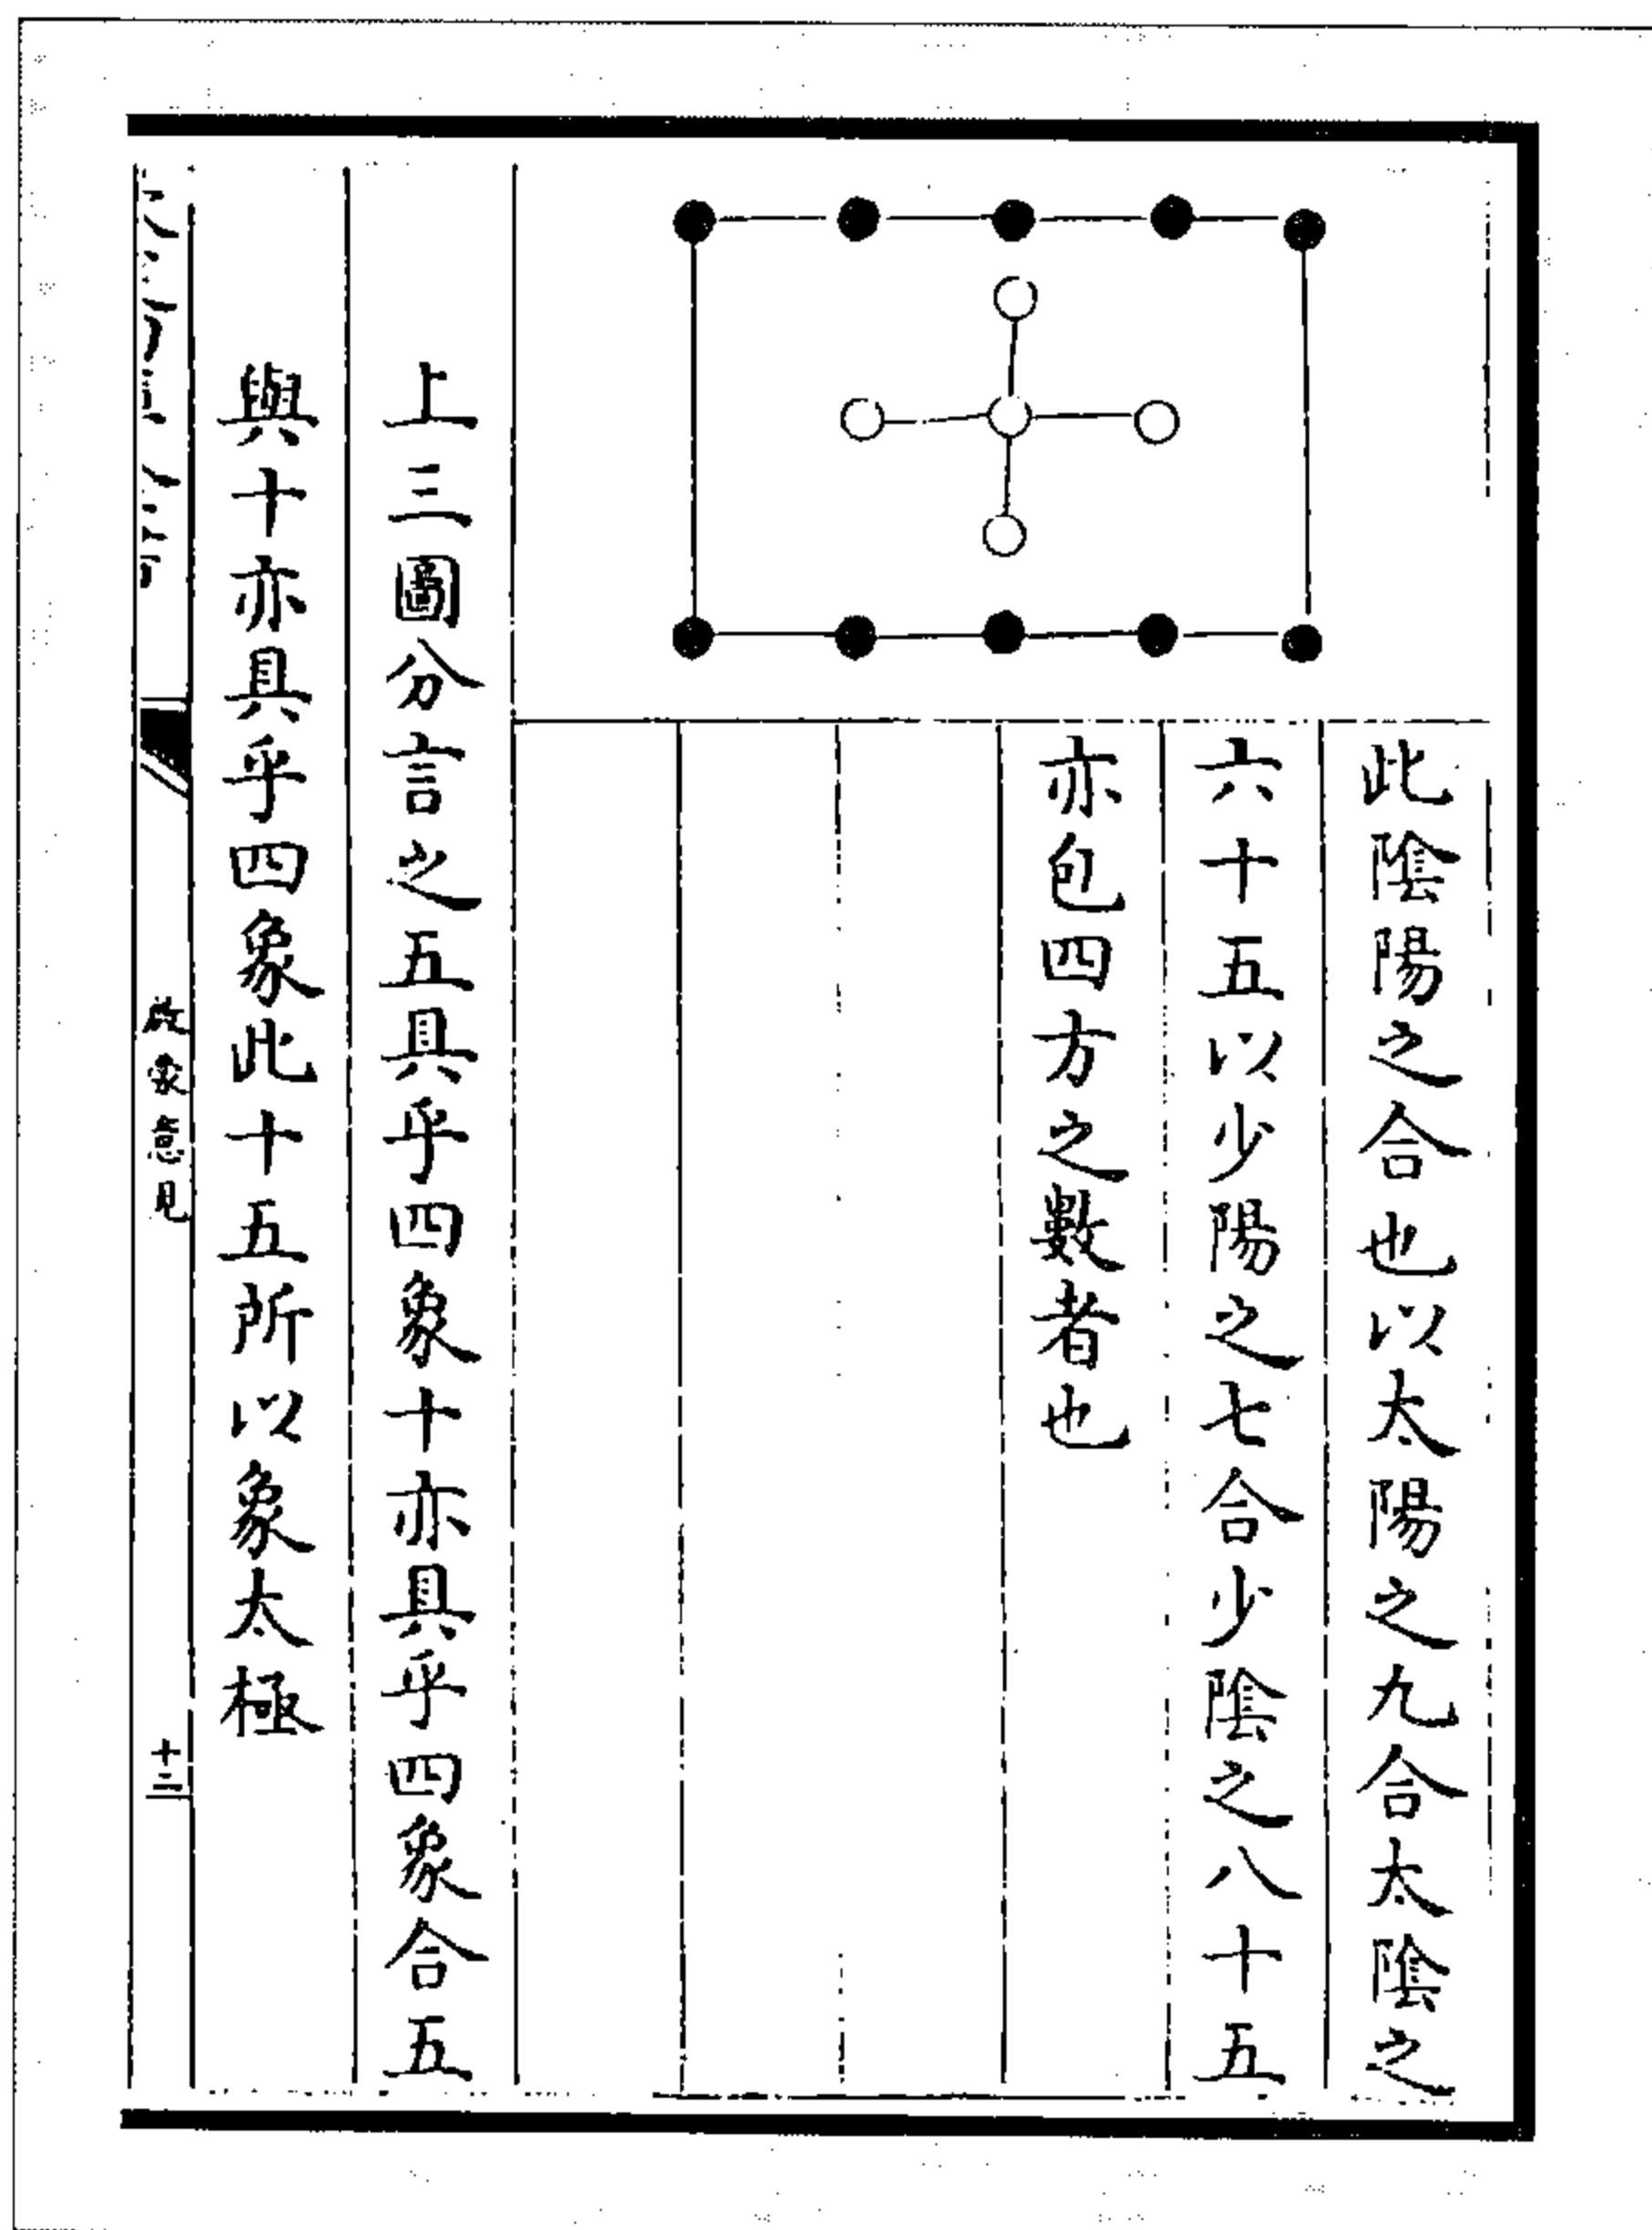 此陰陽之合也以太陽之九合太陰之
六十五以少陽之七合少陰之八十五
亦包四方之數者也
上三圖分言之五具乎四象十亦具乎四象合五
與十亦具乎四象此十五所以象太極
啟蒙意見
十三